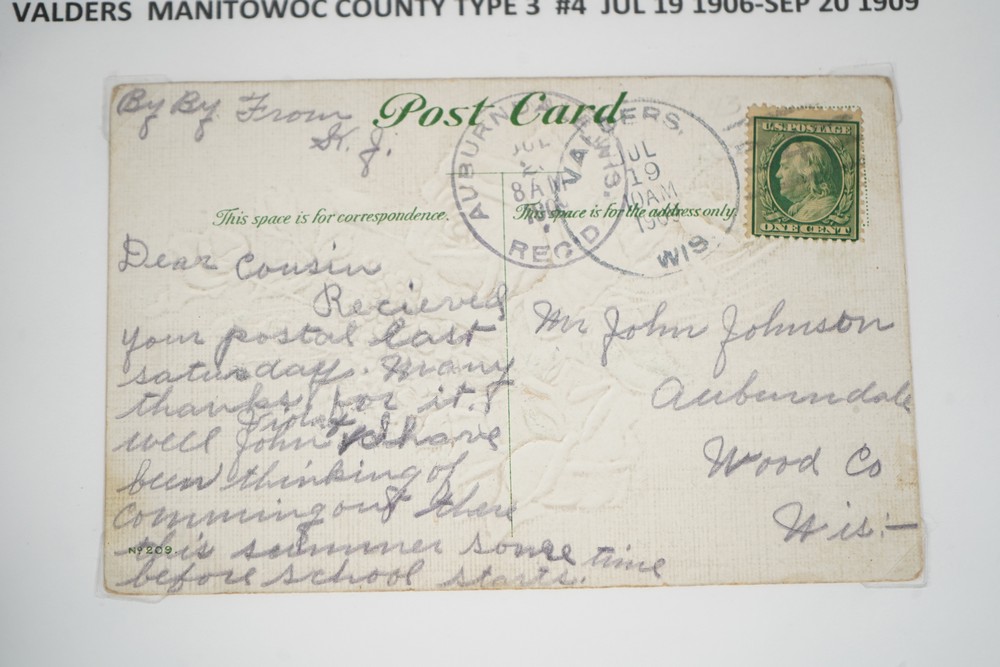 VALDERS MANITOWOC COUNTY TYPE 3 #4 JUL 19 1906-SEP 20 1909
By By From
K. J.
Post Card
AUBURNDALE WIS.
JUL
8 AM
REC'D.
VALDERS,
JUL
19
10AM
190
WIS.
U.S. POSTAGE
ONE CENT
This space is for correspondence.
This space is for the address only.
Dear Cousin
Recieved
your postal last
saturday. Many
thanks for it.
well John I have
been thinking of
comming out there
this summer some time
before school starts.
Nº 209.
Mr John Johnson
Auburndale
Wood Co
Wis:—